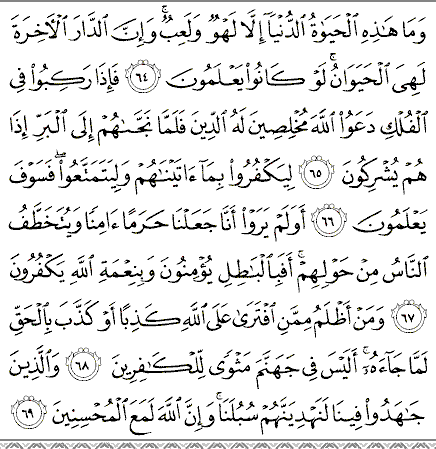 وَمَا هَـٰذِهِ الْحَيَوٰةُ الدُّنْيَآ إِلَّا لَهْوٌ وَلَعِبٌ ۚ وَإِنَّ الدَّارَ الْـَٔاخِرَةَ
لَهِىَ الْحَيَوَانُ ۚ لَوْ كَانُوا۟ يَعْلَمُونَ ٦٤ فَإِذَا رَكِبُوا۟ فِى
الْفُلْكِ دَعَوُا۟ اللَّهَ مُخْلِصِينَ لَهُ الدِّينَ فَلَمَّا نَجَّىٰهُمْ إِلَى الْبَرِّ إِذَا
هُمْ يُشْرِكُونَ ٦٥ لِيَكْفُرُوا۟ بِمَآ ءَاتَيْنَـٰهُمْ وَلِيَتَمَتَّعُوا۟ ۖ فَسَوْفَ
يَعْلَمُونَ ٦٦ أَوَلَمْ يَرَوْا۟ أَنَّا جَعَلْنَا حَرَمًا ءَامِنًا وَيُتَخَطَّفُ
النَّاسُ مِنْ حَوْلِهِمْ ۚ أَفَبِالْبَـٰطِلِ يُؤْمِنُونَ وَبِنِعْمَةِ اللَّهِ يَكْفُرُونَ
٦٧ وَمَنْ أَظْلَمُ مِمَّنِ افْتَرَىٰ عَلَى اللَّهِ كَذِبًا أَوْ كَذَّبَ بِالْحَقِّ
لَمَّا جَآءَهُۥٓ ۚ أَلَيْسَ فِى جَهَنَّمَ مَثْوًى لِّلْكَـٰفِرِينَ ٦٨ وَالَّذِينَ
جَـٰهَدُوا۟ فِينَا لَنَهْدِيَنَّهُمْ سُبُلَنَا ۚ وَإِنَّ اللَّهَ لَمَعَ الْمُحْسِنِينَ ٦٩